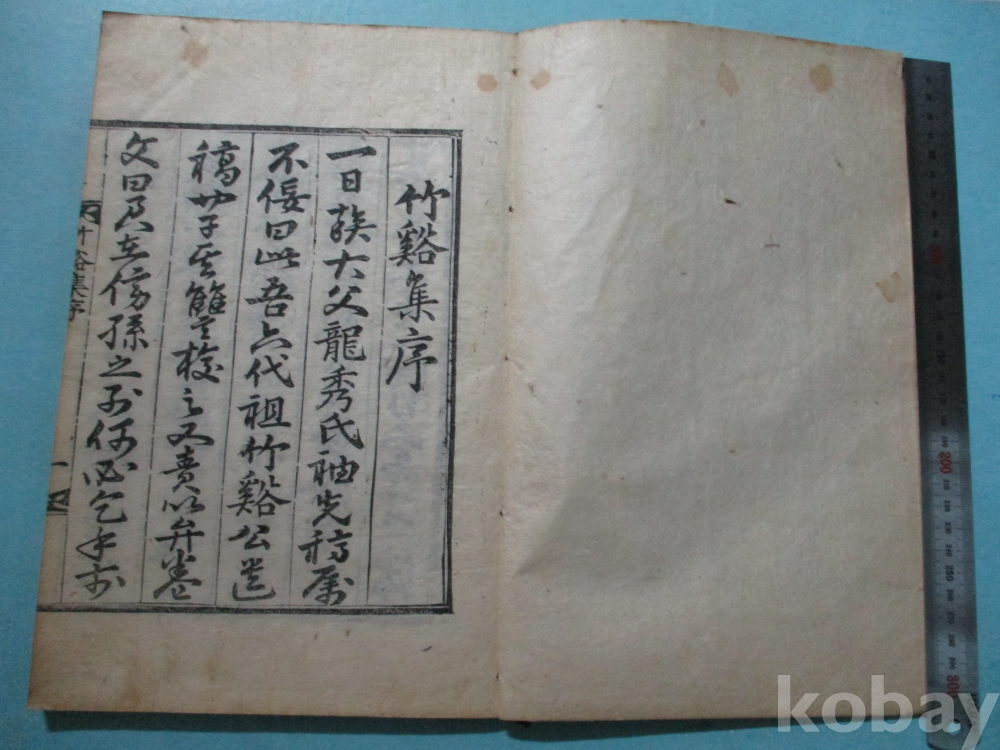 竹谿集序
一日族大父龍秀氏袖先稿属
不佞曰此吾六代祖竹谿公遺
稿也子其讎校之又責以弁卷
文曰君在傍孫之列何必乞
竹谷集序
一
200
300
kobay